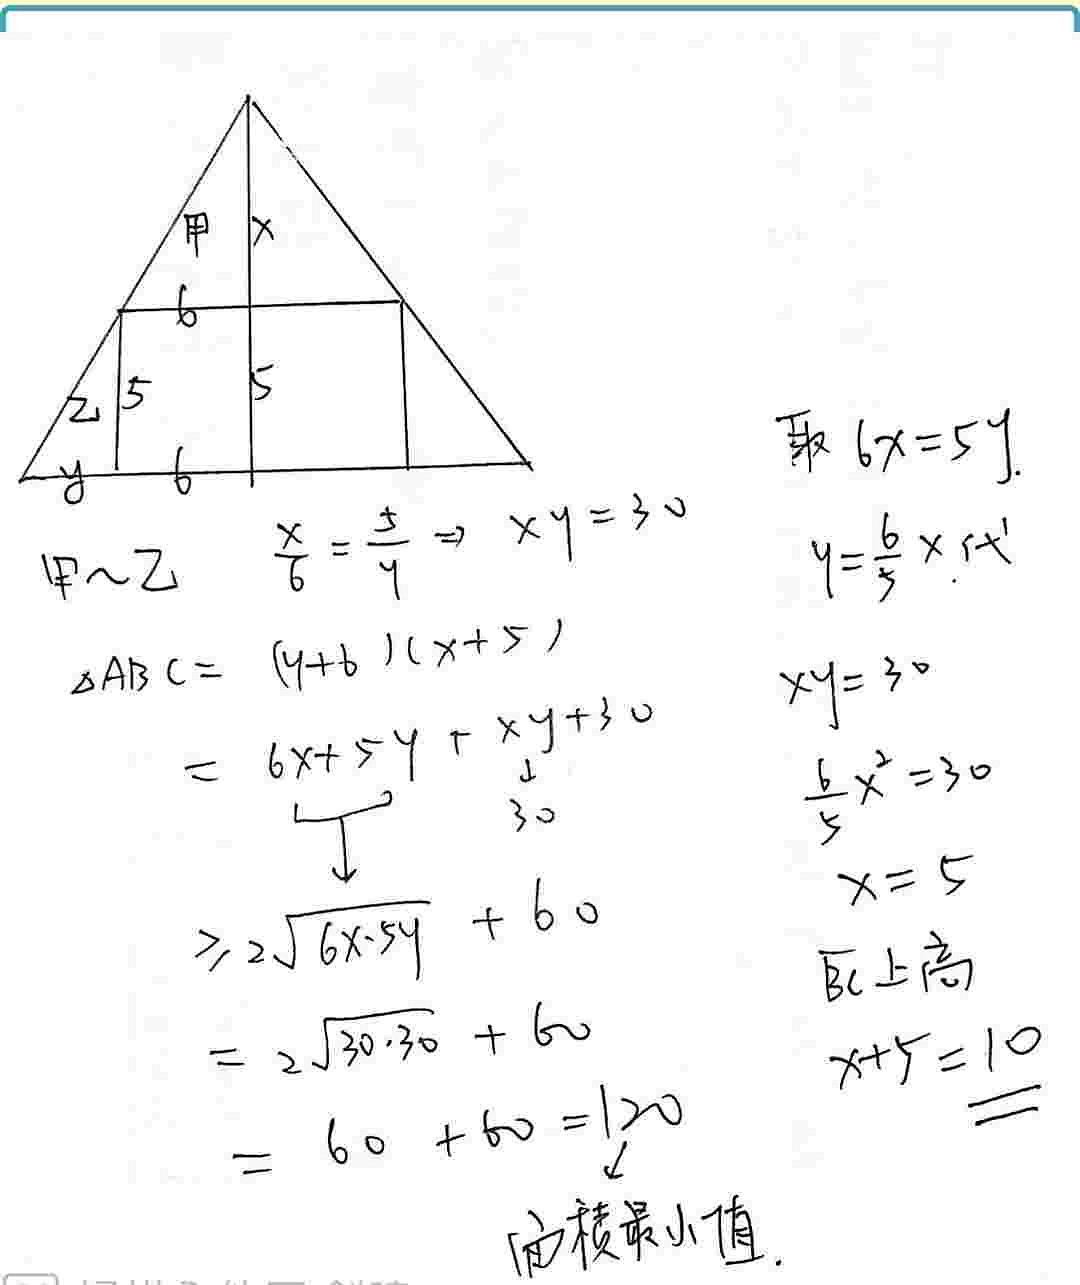 甲 x
6
乙 5 5
y 6
甲~乙 x/6 = 5/y ⇒ xy = 30
△ABC = (y+6)(x+5)
= 6x+5y + xy+30
↓
30
≥ 2√(6x·5y) + 60
= 2√(30·30) + 60
= 60 + 60 = 120
面積最小值.
取 6x=5y.
y = 6/5 x 代
xy = 30
6/5 x² = 30
x = 5
BC上高
x+5 = 10